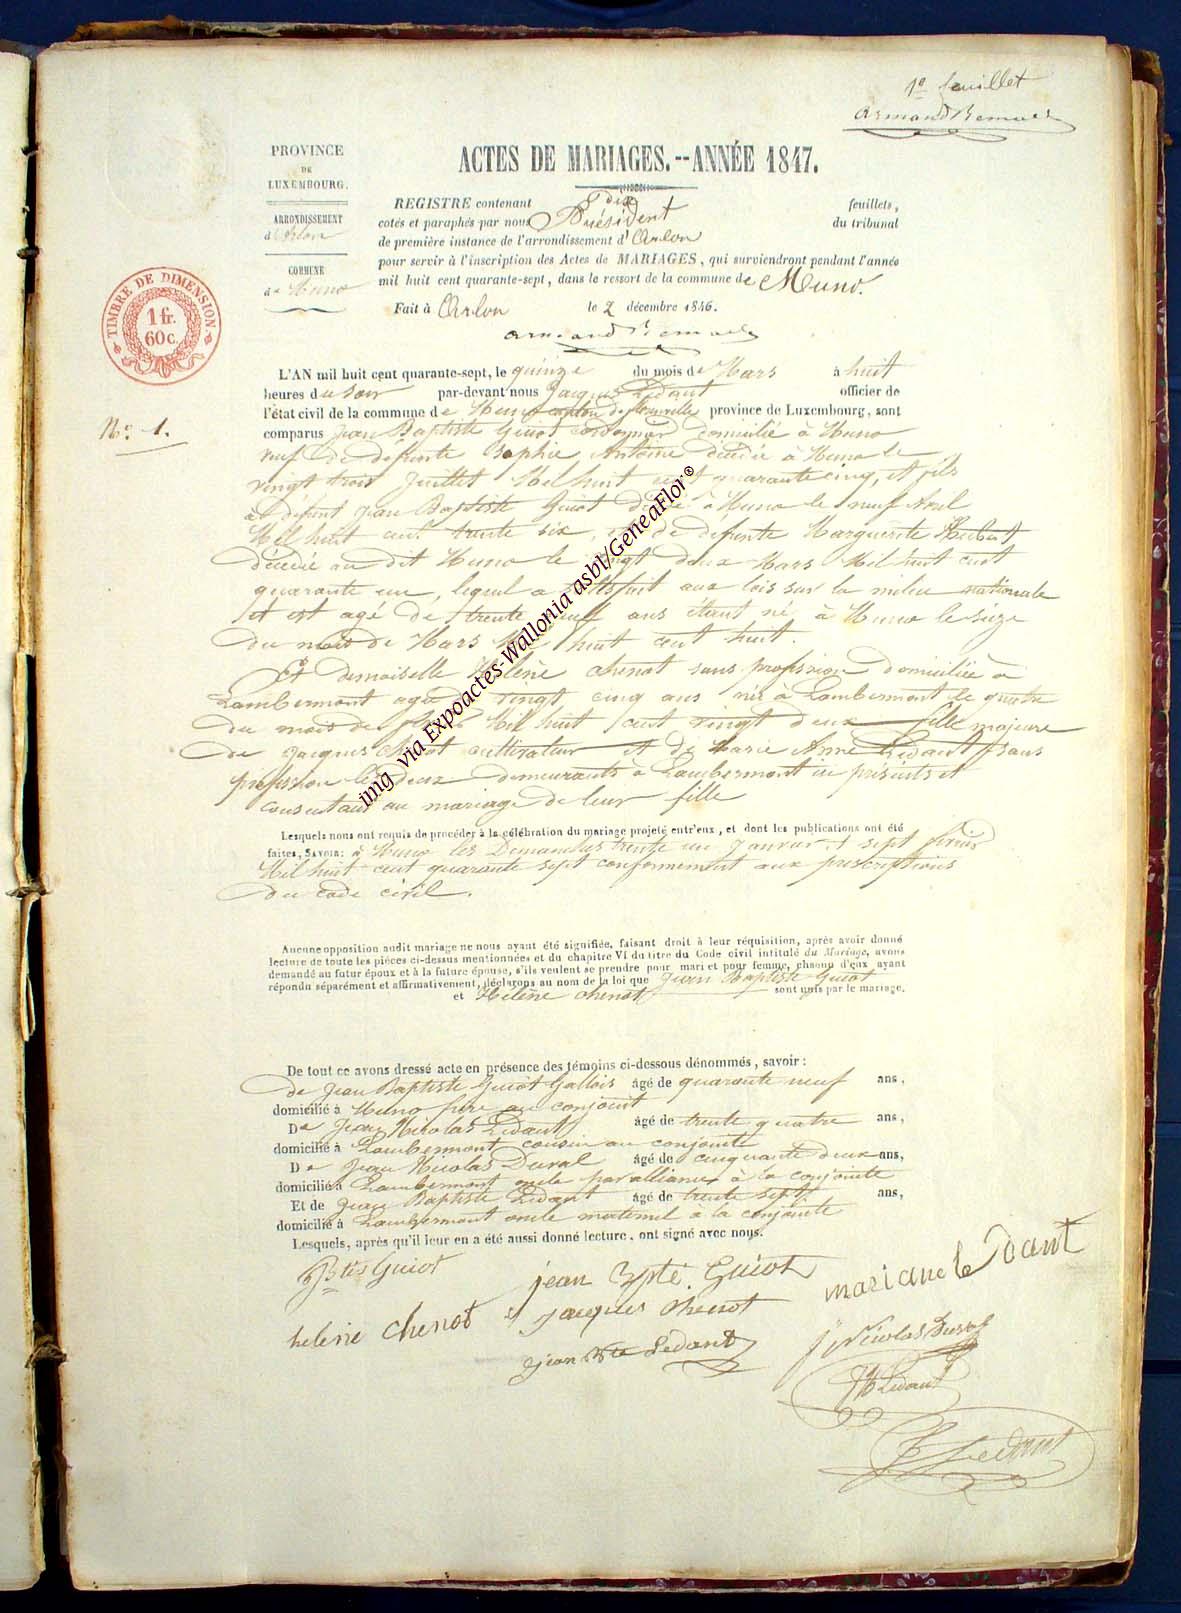 1e feuillet
Armand Bemaels
PROVINCE
DE
LUXEMBOURG.
ARRONDISSEMENT
d'Arlon
COMMUNE
de Muno
TIMBRE DE DIMENSION
1 fr.
60 c.
ACTES DE MARIAGES.--ANNÉE 1847.
REGISTRE contenant dix feuillets,
cotés et paraphés par nous Président du tribunal
de première instance de l'arrondissement d'Arlon
pour servir à l'inscription des Actes de MARIAGES, qui surviendront pendant l'année
mil huit cent quarante-sept, dans le ressort de la commune de Muno.
Fait à Arlon le 2 décembre 1846.
Armand Bemaels
No. 1.
L'AN mil huit cent quarante-sept, le quinze du mois de Mars à huit
heures du soir par-devant nous Jacques Lédant officier de
l'état civil de la commune de Muno canton de Florenville province de Luxembourg, sont
comparus Jean Baptiste Guiot cordonnier domicilié à Muno
veuf de défunte Sophie Antoine décédée à Muno le
vingt trois Juillet Mil huit cent quarante cinq, et fils
de défunt Jean Baptiste Guiot décédé à Muno le neuf Avril
Mil huit cent trente six, de défunte Marguerite Hubert
décédée au dit Muno le vingt deux Mars Mil huit cent
quarante un, lequel a satisfait aux lois sur la milice nationale
et est agé de trente neuf ans étant né à Muno le seize
du mois de Mars Mil huit cent huit.
Et demoiselle Hélène Chenot sans profession domiciliée à
Lambermont agée vingt cinq ans née à Lambermont le quatre
du mois de Mil huit cent vingt deux fille majeure
de Jacques Chenot cultivateur et de Marie Anne Lédant sans
profession les deux demeurants à Lambermont ici présents et
consentant au mariage de leur fille
Lesquels nous ont requis de procéder à la célébration du mariage projeté entr'eux, et dont les publications ont été
faites, SAVOIR: à Muno les Dimanches trente un Janvier et sept février
Mil huit cent quarante sept conformement aux prescriptions
du code civil.
Aucune opposition audit mariage ne nous ayant été signifiée, faisant droit à leur réquisition, après avoir donné
lecture de toute les pièces ci-dessus mentionnées et du chapitre VI du titre du Code civil intitulé du Mariage, avons
demandé au futur époux et à la future épouse, s'ils veulent se prendre pour mari et pour femme, chacun d'eux ayant
répondu séparément et affirmativement, déclarons au nom de la loi que Jean Baptiste Guiot
et Hélène Chenot sont unis par le mariage.
De tout ce avons dressé acte en présence des témoins ci-dessous dénommés, savoir:
de Jean Baptiste Guiot Gallois âgé de quarante neuf ans,
domicilié à Muno frère au conjoint
De Jean Nicolas Lédant âgé de trente quatre ans,
domicilié à Lambermont cousin au conjointe
De Jean Nicolas Duval âgé de cinquante deux ans,
domicilié à Lambermont oncle par alliance à la conjointe
Et de Jean Baptiste Lédant âgé de trente sept ans,
domicilié à Lambermont oncle maternel à la conjointe
Lesquels, après qu'il leur en a été aussi donné lecture, ont signé avec nous.
Guiot jean Bpte. Guiot mariane le dant
helene chenot jacques chenot
jean Bte Ledant Nicolas Duval
Ledant
Ledant
img via Expoactes-Wallonia asbl/GeneaFlor®